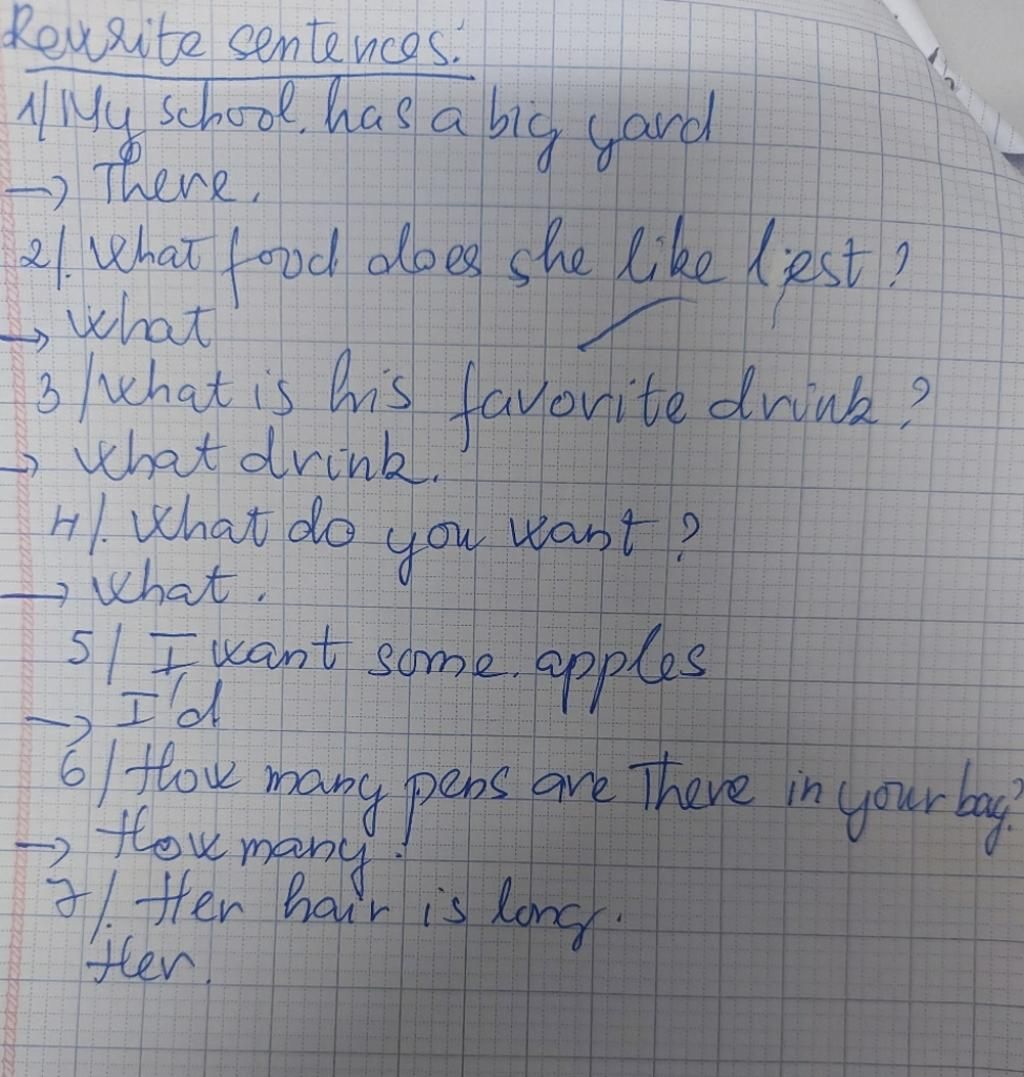 Rewrite sentences:
1/ My school has a big yard
→ There.
2/. What food does she like best?
→ What
3/ What is his favorite drink?
→ What drink.
4/. What do you want?
→ What.
5/ I want some apples
→ I'd
6/ How many pens are There in your bag?
→ How many.
7/. Her hair is long.
Her.